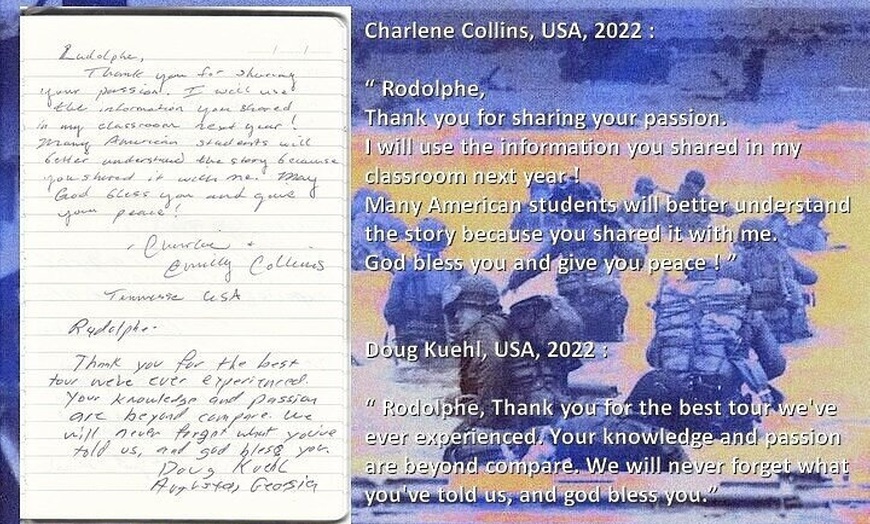 Rudolphe,
Thank you for sharing
your passion. I will use
the information you shared
in my classroom next year!
Many American students will
better understand the story because
you shared it with me. May
God bless you and give
you peace!
Emily Collins
Tennessee USA
Rudolphe-
Thank you for the best
tour we've ever experienced.
Your knowledge and passion
are beyond compare. We
will never forget what you've
told us, and god bless you.
Doug Kuehl
Augusta, Georgia
Charlene Collins, USA, 2022 :
“ Rodolphe,
Thank you for sharing your passion.
I will use the information you shared in my
classroom next year !
Many American students will better understand
the story because you shared it with me.
God bless you and give you peace ! ”
Doug Kuehl, USA, 2022 :
“ Rodolphe, Thank you for the best tour we've
ever experienced. Your knowledge and passion
are beyond compare. We will never forget what
you've told us, and god bless you.”